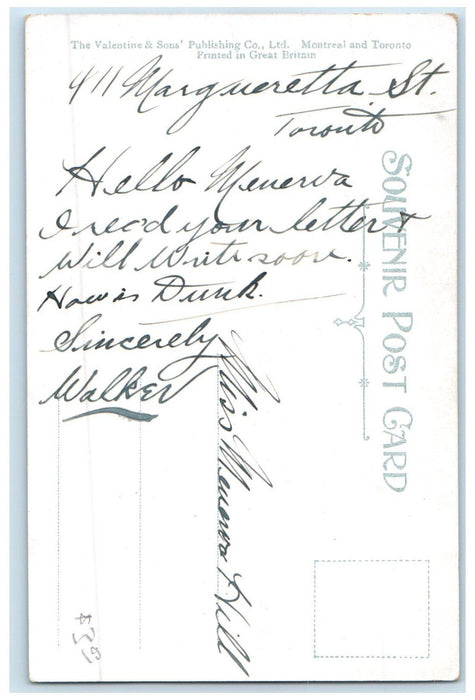 The Valentine & Sons' Publishing Co., Ltd. Montreal and Toronto
Printed in Great Britain
911 Margueretta St.
Toronto
Hello Menerva
I rec'd your letter &
Will Write soon.
How is Dunk.
Sincerely
Walker
Miss Menerva Hill
SOUVENIR POST CARD